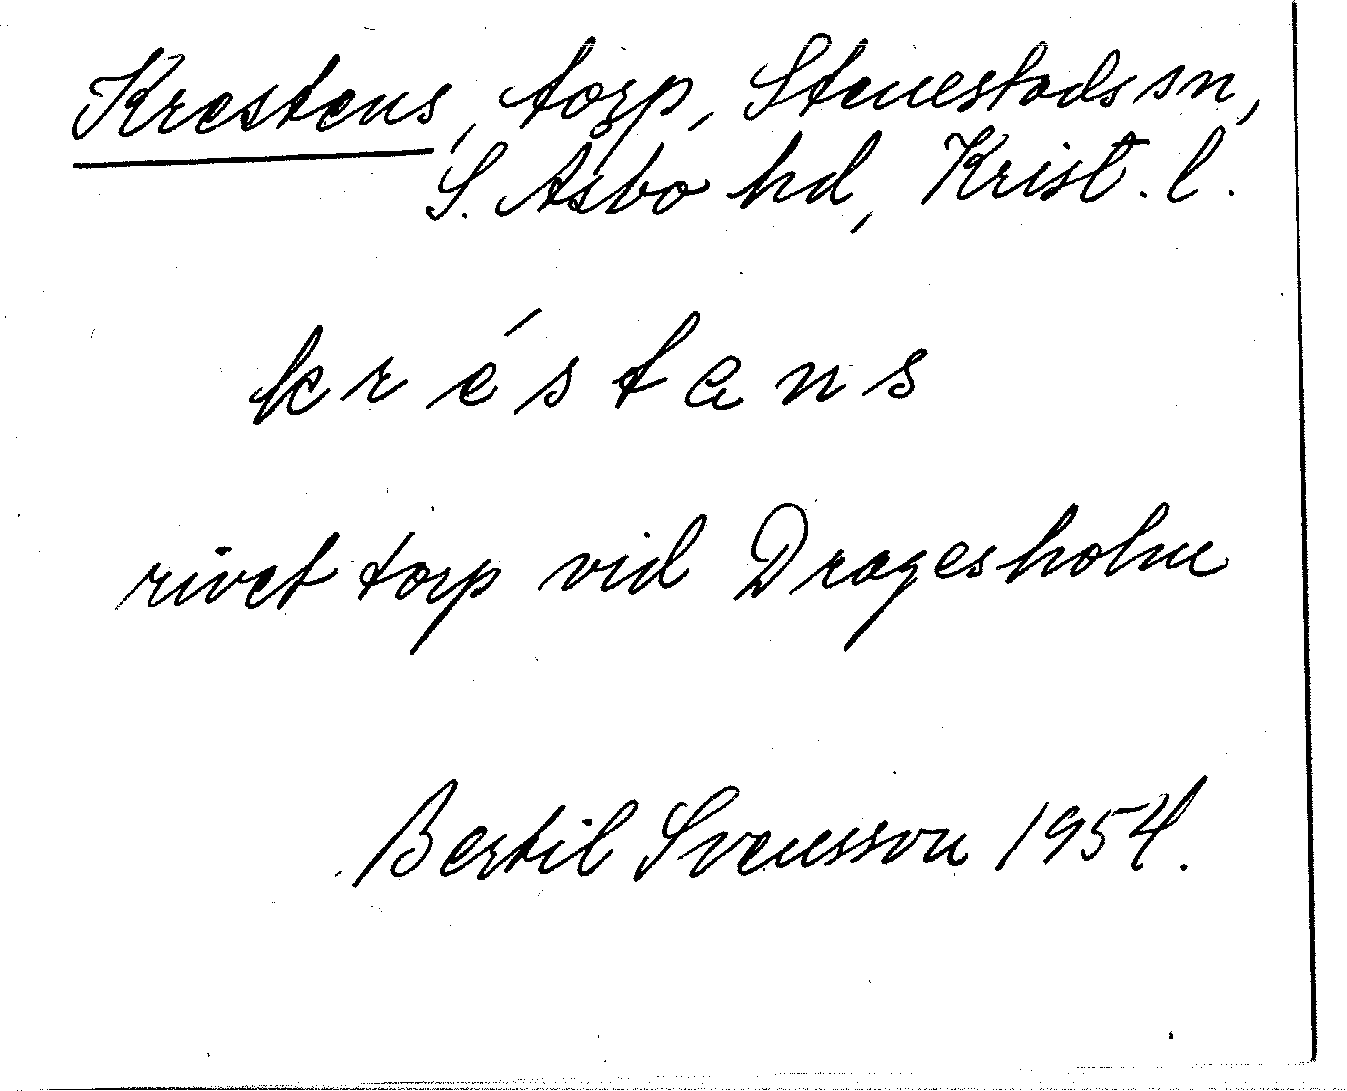 Krestens, torp, Stenestads sn,
S. Åsbo hd, Krist. l.
kréstens
rivet torp vid Dragesholm
Bertil Svensson 1954.